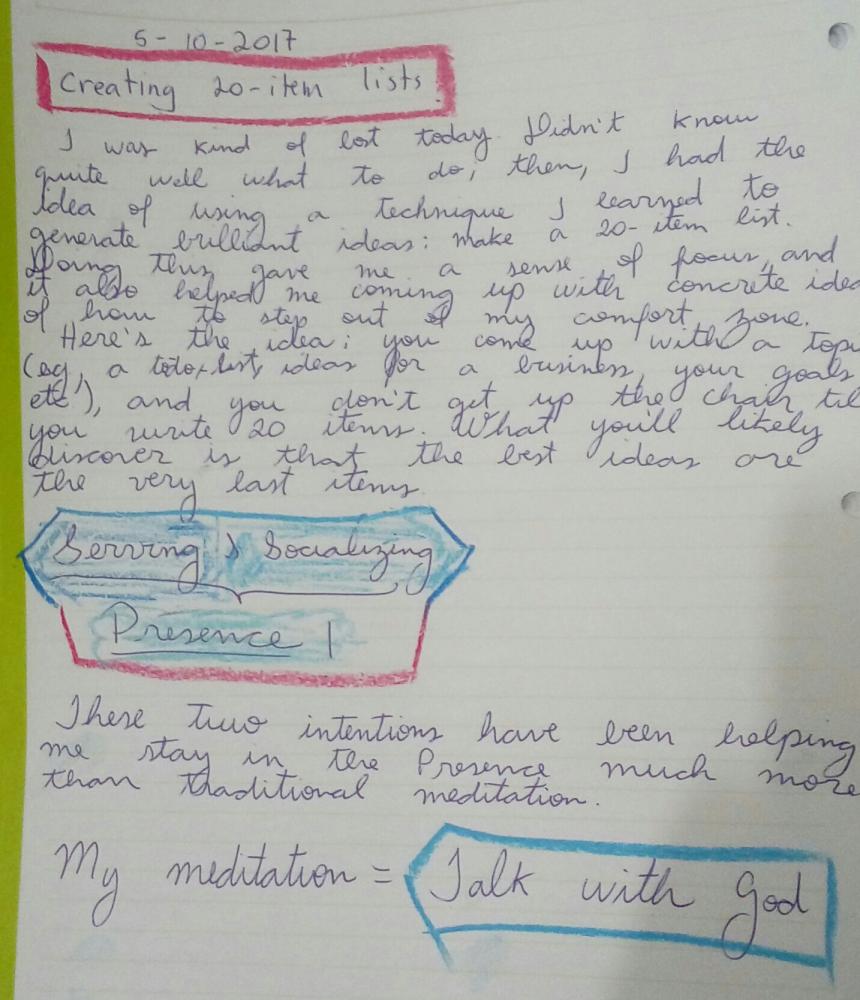 5-10-2017
Creating 20-item lists.
I was kind of lost today. Didn't know
quite well what to do, then, I had the
idea of using a technique I learned to
generate brilliant ideas: make a 20-item list.
Doing this gave me a sense of focus, and
it also helped me coming up with concrete idea
of how to step out of my comfort zone.
Here's the idea: you come up with a topi
(eg, a todo-list, ideas for a business, your goals
etc), and you don't get up the chair til
you write 20 items. What you'll likely
discover is that the best ideas are
the very last items.
Serving > Socializing
Presence!
These two intentions have been helping
me stay in the Presence much more
than traditional meditation.
My meditation = Talk with God